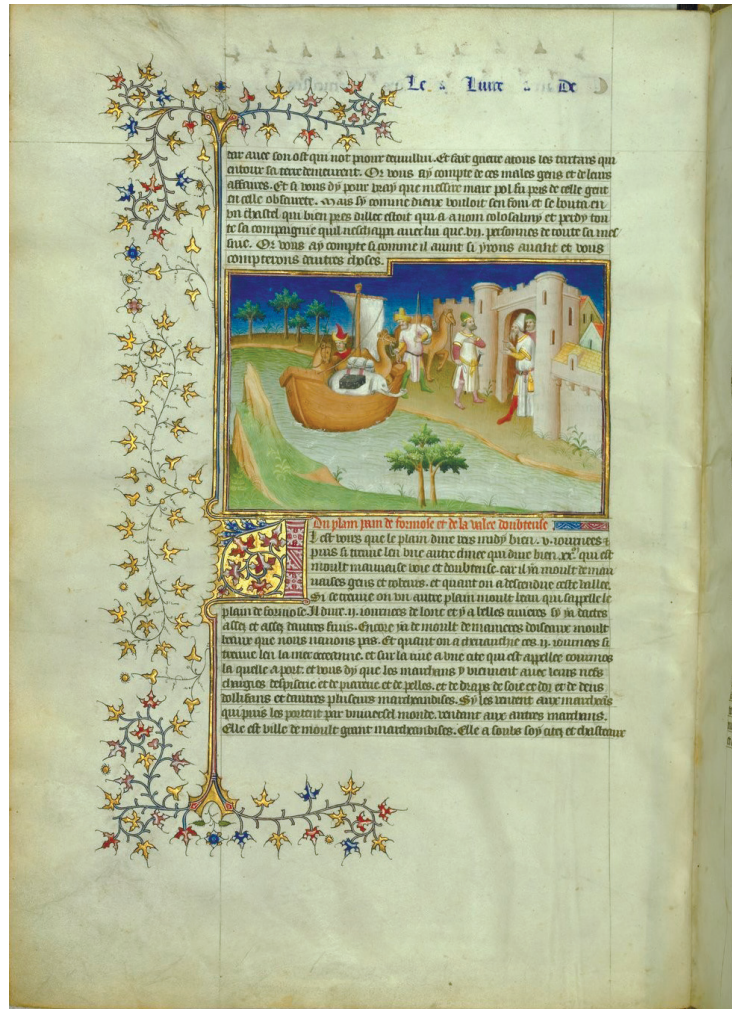 Le Liure De
tar auec son ost qui not piour deuullin. Et fait guerre atous les tartars qui
entour sa terre demeurent. Or vous ay compte de ces males gens et de leurs
affaires. Et si vous dy pour vray que messire marc pol fu pris de celle gent
en celle obscurete. Mais sy comme dieux vouloit sen foui et se bouta en
vn chastel qui bien pres dillec estoit qui a a nom colosalmy et perdy tou
te sa compaignie quil neschappa auec lui que .vn. personnes de toute sa mes
nie. Or vous ay compte si comme il auint si yrons auant et vous
compterons dautres choses.
Du plain de formose et de la valee doubteuse
Il est voirs que le plain dure vers midy bien .v. iournees et
puis si treuue len vne autre clinee qui dure bien .xx. qui est
moult mauuaise voie et doubteuse. car il ya moult de mau
uaises gens et robeurs. et quant on a descendue ceste vallee
Si se treuue on vn autre plain moult beau qui sappelle le
plain de formose. Il dure .ij. iournees de lonc et y a belles riuieres sy ya dactes
asses et asses dautres fruis. Encore ya de moult de manieres doiseaux moult
beaux que nous nauons pas. Et quant on a cheuauchie ces .ij. iournees si
treuue len la mer occeanne. et sur la riue a vne cite qui est appellee cormos
la quelle a port. et vous dy que les marchans y viennent auec leurs nefs
chargies despicerie et de pierrerie et de pelles. et de draps de soie et dor et de dens
dollifans et dautres pluseurs marchandises. Sy les vendent aux marchans
qui puis les portent par vniuersel monde. vendant aux autres marchans.
Elle est ville de moult grant marchandises. Elle a soubs soy cites et chasteaux